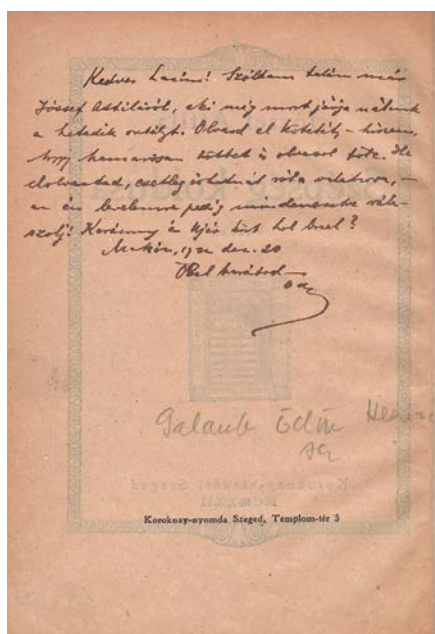 Kedves Lacim! Szóltam talán már
József Attiláról, aki még most járja nálunk
a hetedik osztályt. Olvasd el kötetét – hiszem,
hogy hamarosan többet is olvasol tőle. Ha
elolvastad, esetleg írhatnál róla valahova, –
az én levelemre pedig mindenesetre vála-
szolj! Karácsony és Újév közt hol leszel?
Makón, 1922 dec. 20
Ölel barátod
Galamb Ödön
Koroknay-nyomda Szeged, Templom-tér 3